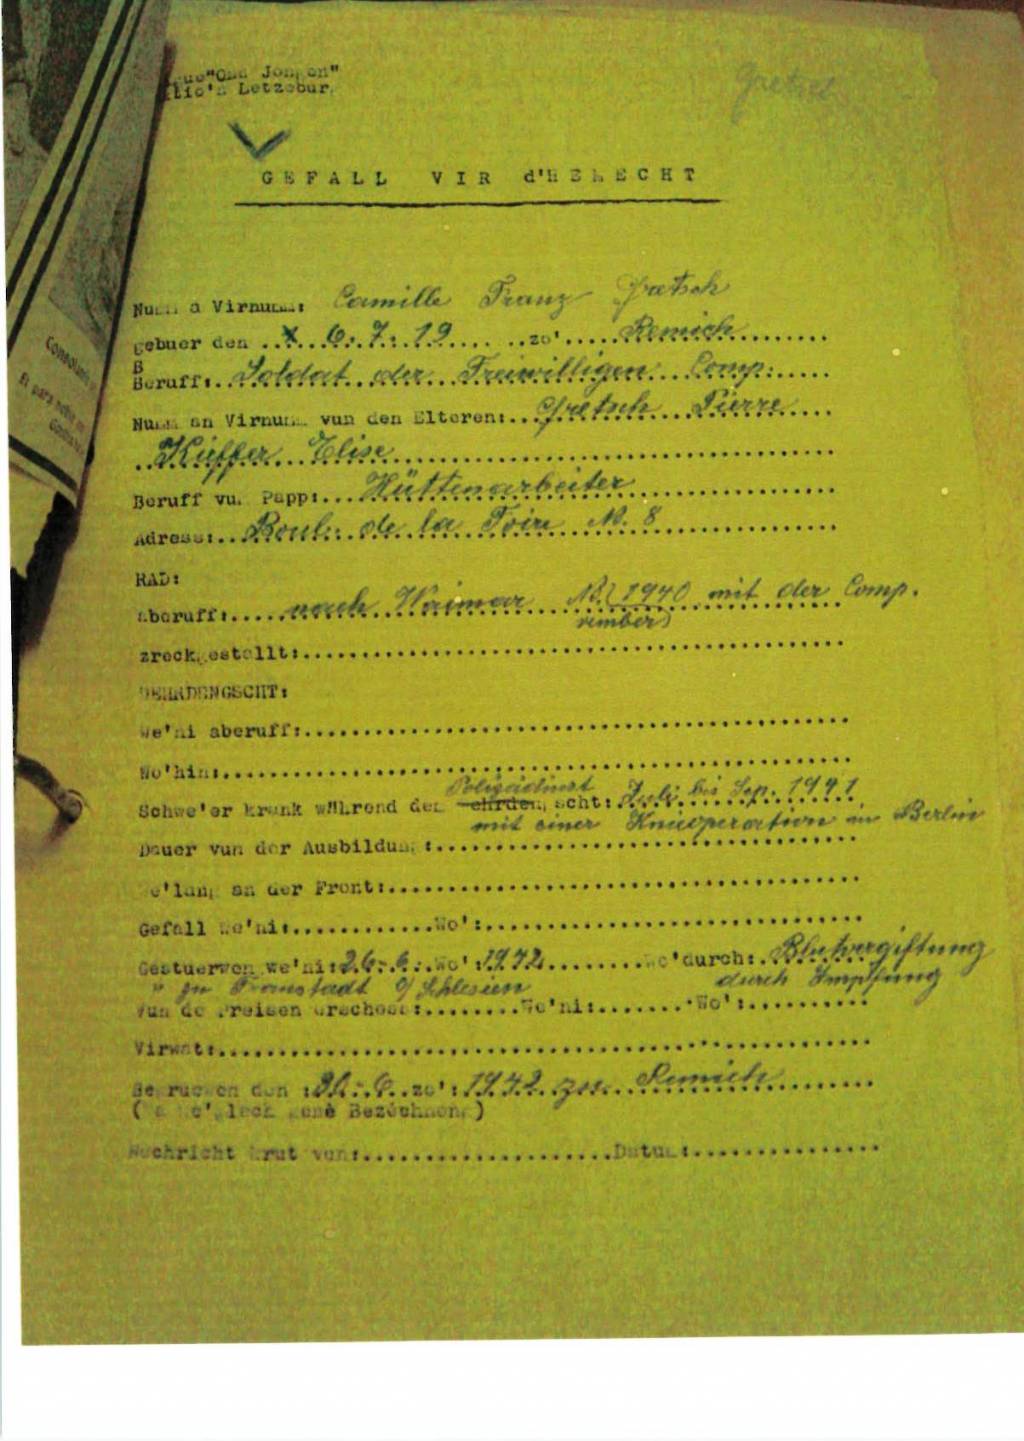 "Ons Jongen"
Letzebur.
Gretsch
GEFALL VIR d'HEMECHT
Numm a Virnumm: Camille Franz Gretsch
gebuer den .. 6.7.19 .... ..zo'..... Remich
B
Beruff: Soldat der Freiwilligen Comp.
Numm an Virnumm vun den Elteren:... Gretsch Pierre
Kieffer Elise
Beruff vum Papp:... Hüttenarbeiter
Adress:.. Boul. de la Foire N. 8
RAD:
aberuff:.... nach Weimar 1940 mit der Comp.
vember)
zreckgestellt:
WEHRDENGSCHT:
We'ni aberuff:
Wo'hin:
Polizeidienst
Schwe'er krank während dem Wehrdengscht: Juli bis Sep. 1941
mit einer Knieoperation in Berlin
Dauer vun der Ausbildung:
We'lang an der Front:
Gefall we'ni:............Wo':
Gestuerwen we'ni: 26.6. Wo': 1942 ........ Wo'durch: Blutvergiftung
" zu Fraustadt o/ Schlesien durch Impfung
Vun de Preisen erschoss:........We'ni:.......Wo':
Virwat:
Begruewen den : 6. zo': 1942 zu Remich
Bezéchnong)
Nochricht krut vun:....................Datum:
Consolante